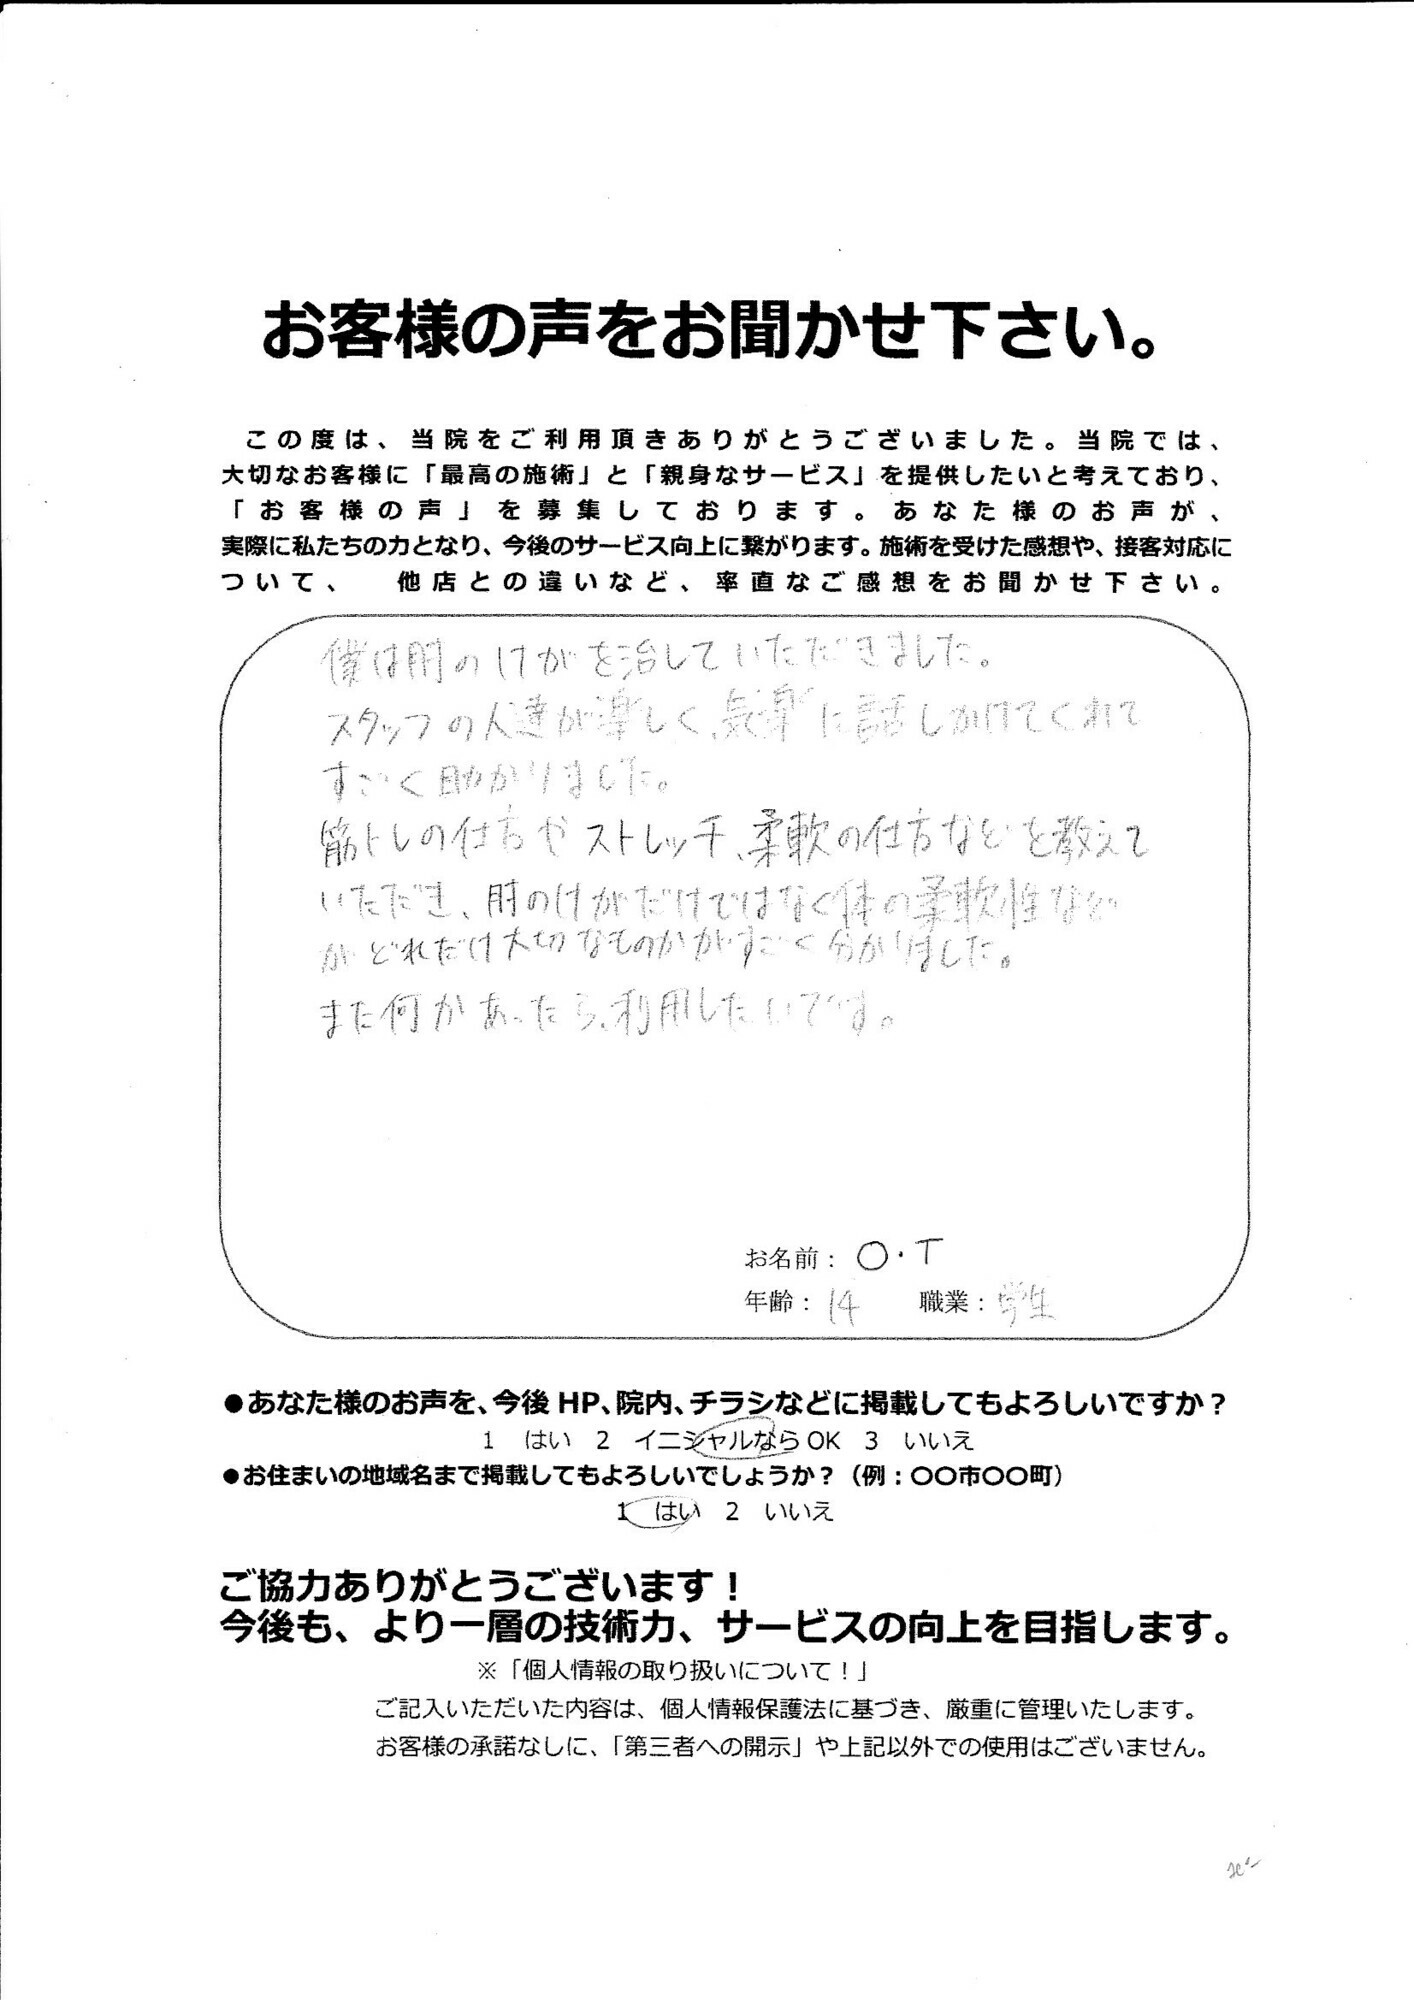 お客様の声をお聞かせ下さい。
この度は、当院をご利用頂きありがとうございました。当院では、
大切なお客様に「最高の施術」と「親身なサービス」を提供したいと考えており、
「お客様の声」を募集しております。あなた様のお声が、
実際に私たちの力となり、今後のサービス向上に繋がります。施術を受けた感想や、接客対応に
ついて、 他店との違いなど、率直なご感想をお聞かせ下さい。
僕は肘のけがを治していただきました。
スタッフの人達が楽しく、気楽に話しかけてくれて
すごく助かりました。
筋トレの仕方やストレッチ、柔軟の仕方などを教えて
いただき、肘のけがだけではなく体の柔軟性など
がどれだけ大切なものかがすごく分かりました。
また何かあったら、利用したいです。
お名前: O・T
年齢: 14 職業: 学生
●あなた様のお声を、今後 HP、院内、チラシなどに掲載してもよろしいですか?
1 はい 2 イニシャルなら OK 3 いいえ
●お住まいの地域名まで掲載してもよろしいでしょうか?(例:〇〇市〇〇町)
1 はい 2 いいえ
ご協力ありがとうございます!
今後も、より一層の技術力、サービスの向上を目指します。
※「個人情報の取り扱いについて!」
ご記入いただいた内容は、個人情報保護法に基づき、厳重に管理いたします。
お客様の承諾なしに、「第三者への開示」や上記以外での使用はございません。